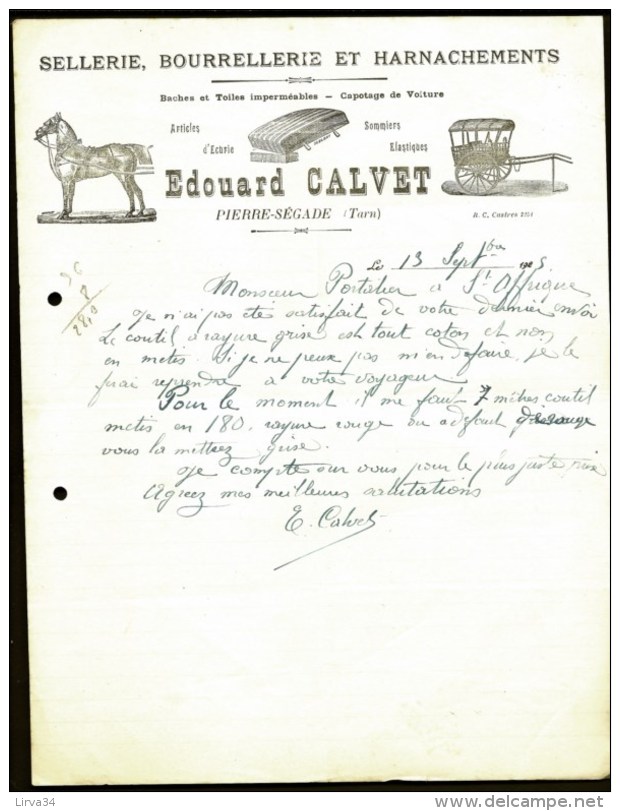 SELLERIE, BOURRELLERIE ET HARNACHEMENTS
Baches et Toiles imperméables — Capotage de Voiture
Articles Sommiers
d'Ecurie Elastiques
Edouard CALVET
PIERRE-SÉGADE (Tarn)
R. C. Castres
Le 13 Sept bre 19
Monsieur Portalier à St Affrique
Je n'ai pas été satisfait de votre dernier envoi
Le coutil à rayure grise est tout coton et non
en metis. Si je ne peux pas m'en defaire, je le
ferai reprendre à votre voyageur
Pour le moment il me faut 7 mètres coutil
metis en 180, rayure rouge ou a defaut de rouge
vous la mettrez grise.
Je compte sur vous pour le plus juste prix
Agréez mes meilleures salutations
E. Calvet
Lirva34
www.delcampe.net